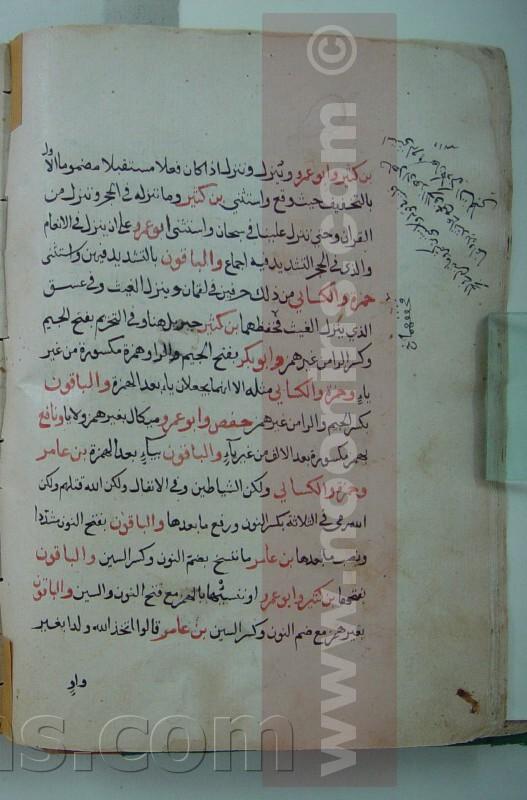 بن كثير وابو عمرو وينزل وتنزل اذا كان فعلا مستقبلا مضموم الاول
بالتخفيف حيث وقع واستثنى بن كثير وما ننزله في الحجر وننزل من
القران وحتى تنزل علينا في سبحان واستثنى ابو عمرو على ان ينزل في الانعام
والذي في الحجر التشديد فيه اجماع والباقون بالتشديد فيهن واستثنى
حمزة والكسائي من ذلك حرفين في لقمان وينزل الغيث وفي عسق
الذي ينزل الغيث فخففهما بن كثير جبريل هنا وفي التحريم بفتح الجيم
وكسر الرا من غير همز وابو بكر بفتح الجيم والرا وهمزة مكسورة من غير
ياء وحمزة والكسائي مثله الا انهما يجعلان ياء بعد الهمزة والباقون
بكسر الجيم والرا من غير همز حفص وابو عمرو ميكال بغير همز ولا يا ونافع
بهمز مكسورة بعد الالف من غير ياء والباقون بياء بعد الهمزة بن عامر
وحمزة والكسائي ولكن الشياطين وفي الانفال ولكن الله قتلهم ولكن
الله رمى في الثلاثة بكسر النون ورفع ما بعدها والباقون بفتح النون مشددا
ونصب ما بعدها بن عامر ما ننسخ بضم النون وكسر السين والباقون
بفتحها بن كثير وابو عمرو او ننسئها بالهمز مع فتح النون والسين والباقون
بغير همز مع ضم النون وكسر السين بن عامر قالوا اتخذ الله ولدا بغير
واو
www.noorlrs.com ©
s.com